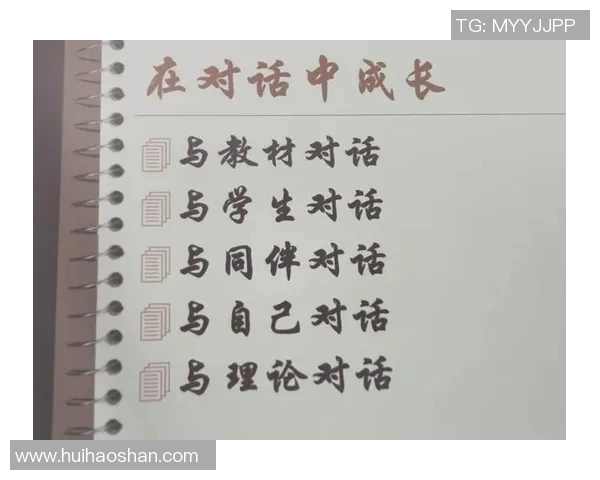 TG: MYYJJPP
在对话中成长
与教材对话
与学生对话
与同伴对话
与自己对话
与理论对话
www.huihaoshan.com